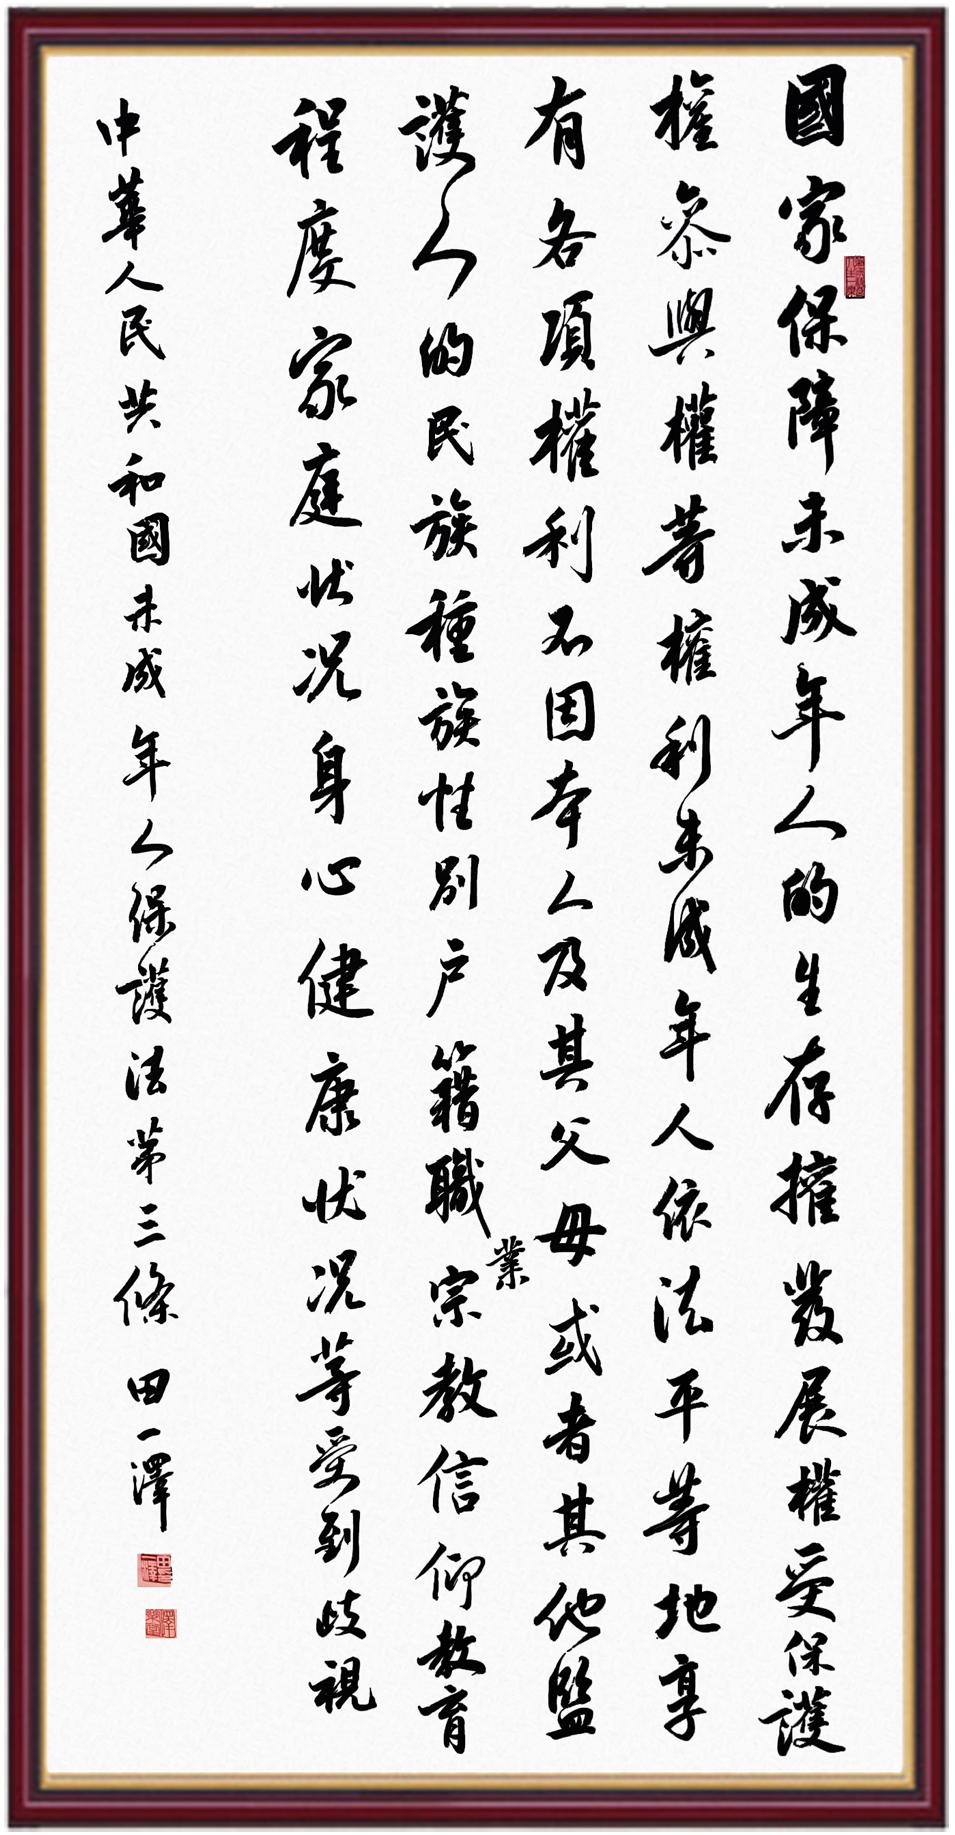 國家保障未成年人的生存權發展權受保護
權參與權等權利未成年人依法平等地享
有各項權利不因本人及其父母或者其他監
護人的民族種族性別户籍職業宗教信仰教育
程度家庭状况身心健康状况等受到歧視
中華人民共和國未成年人保護法第三條 田一澤